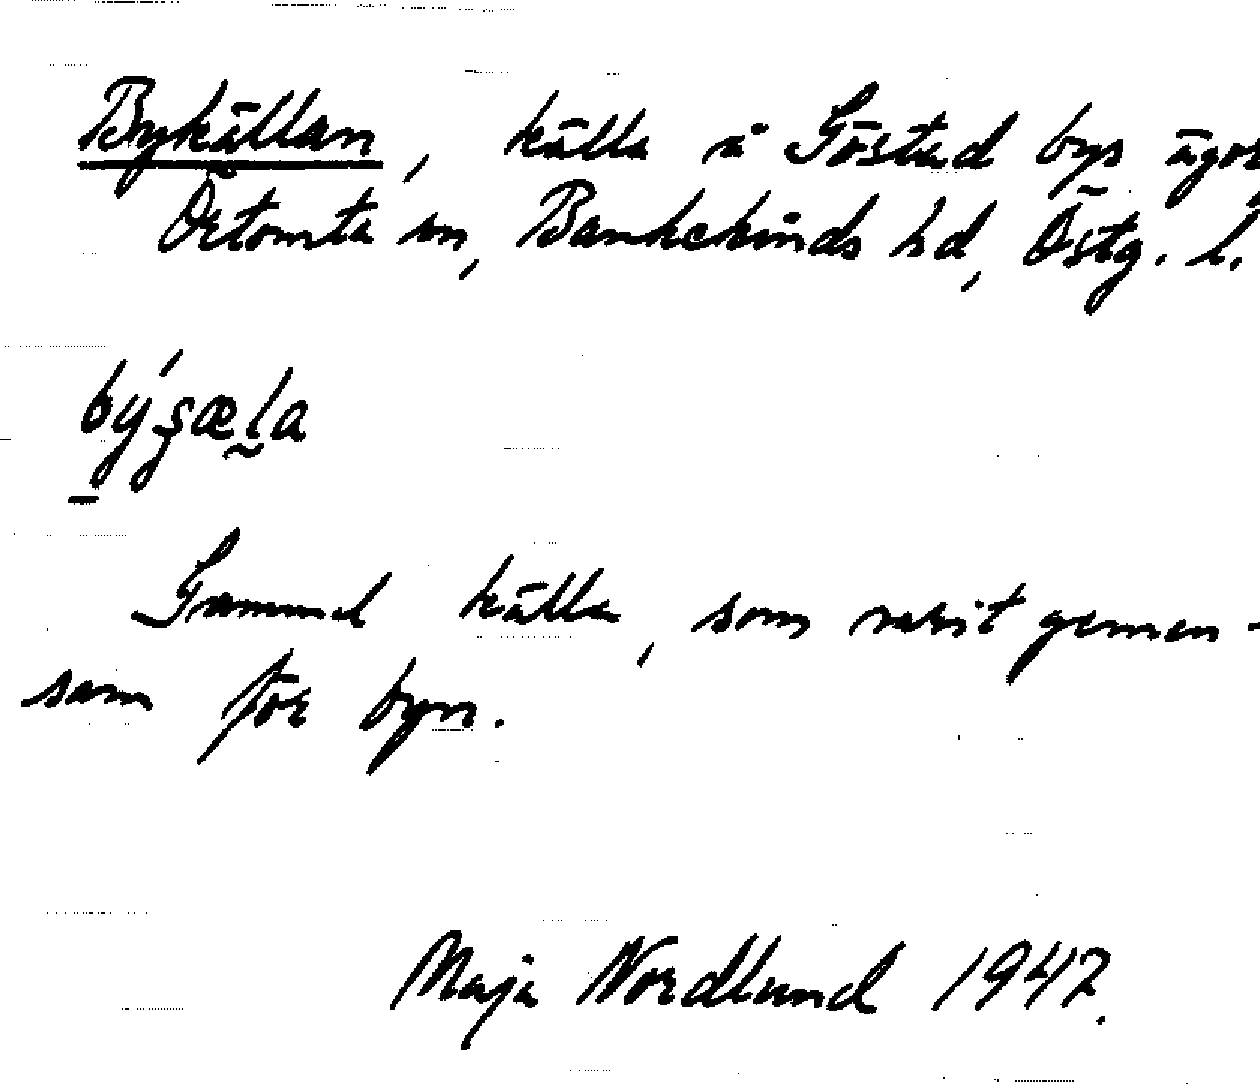 Bykällan, källa å Göstad bys ägor
Örtomta sn, Bankekinds hd, Östg. l.
Gammal källa, som varit gemen-
sam för byn.
Maja Nordlund 1947.